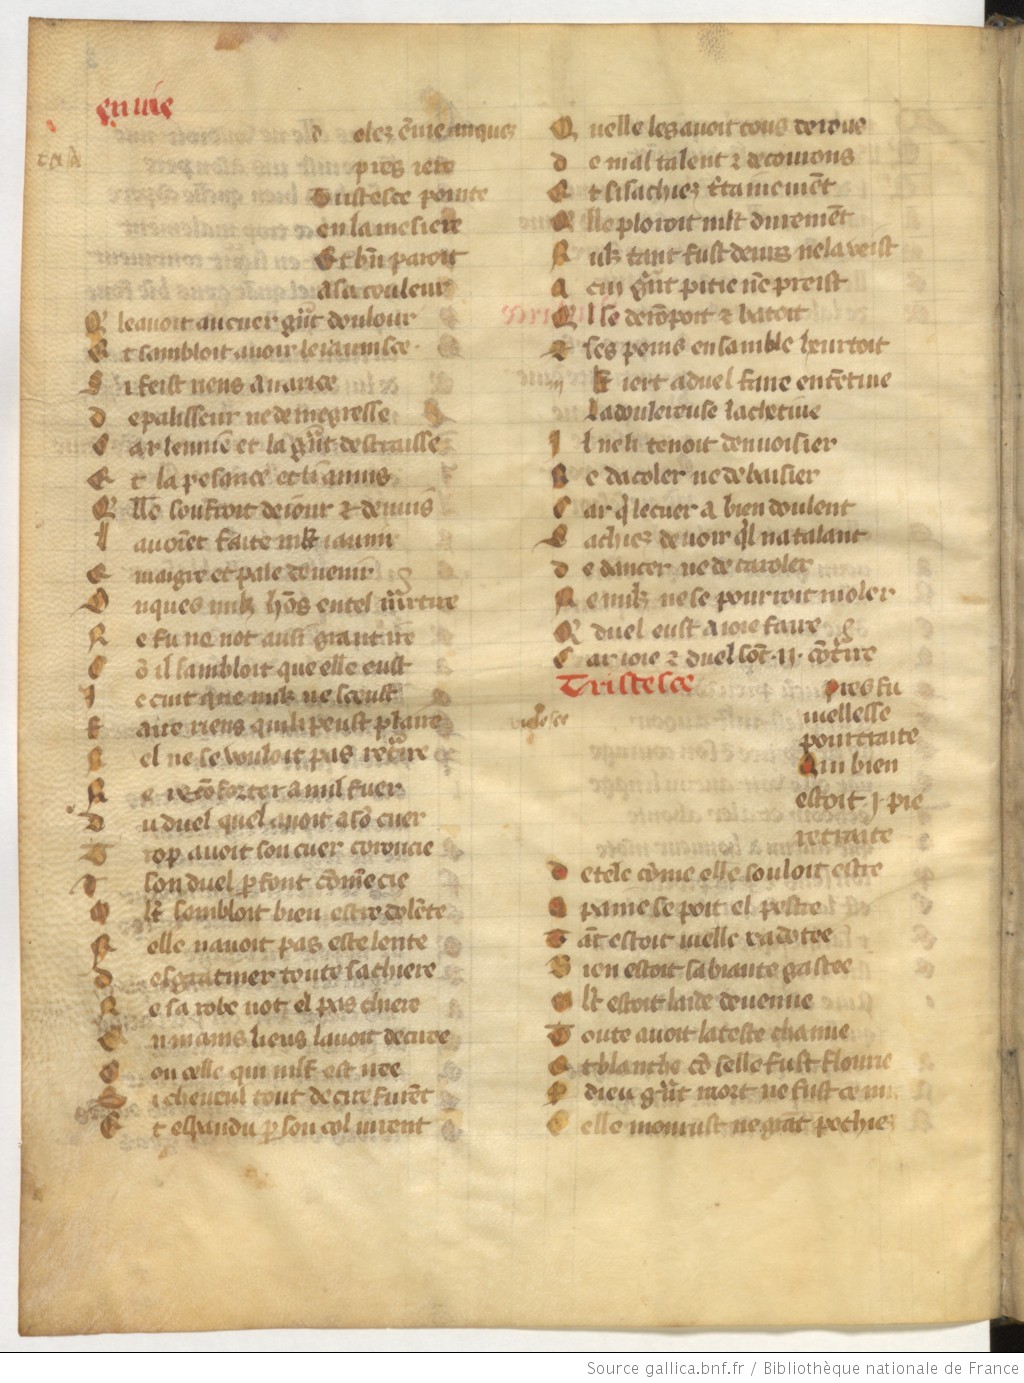 envie
d elez ẽvie auques
pres iere
Tristesce pointe
en la mesiere
Et bñ paroit
a sa couleur
Q leavoit au cuer g̃nt doulour
E t sambloit avoir le iaunisce
S i feist riens avarice
d e palisseur ne de megresse
C ar lennuie et la g̃nt destraisse
E t la pesance et li anuis
Q lle souffroit de iour ⁊ de nuis
l avoiẽt faite mlt iaunir
E maigre et pale devenir
O nques nulz hõs en tel martire
N e fu ne not ausi grant ire
C õ il sambloit que elle eust
I e cuit que nulz ne sceust
F aire riens qui li peust plaire
N el ne se vouloit pas retraire
N e recõforter a nul fuer
D u duel quel avoit a sõ cuer
T rop avoit son cuer coroucie
T son duel parfont cõmecie
M lt sambloit bien estre dolẽte
Q elle navoit pas este lente
d esgratiner toute sa chiere
N e sa robe not el pas chiere
E n mains lieus lavoit deciree
C ou celle qui mlt est iree
S i cheveul tout decire furẽt
E t espandu p son col iurent
Q uelle les avoit tous derous
d e mal talent ⁊ de courous
E t si sachiez c̃tainemẽt
Q lle ploroit mlt duremẽt
N ulz tant fust deurs ne la veist
A cui g̃nt pitie nẽ preist
Q l se derõpoit ⁊ batoit
E t ses poins ensamble heurtoit
M lt iert a duel faire ententive
La doulereuse la chetive
I l ne li tenoit denvoisier
N e dacoler ne de baisier
C ar q̃ le cuer a bien doulent
S achiez de voir q̃l na talant
d e dancer ne de caroler
N e nulz ne se pourroit moler
Q duel eust a ioie faire
C ar ioie ⁊ duel sõt .ii. cõtire
Tristesce
pres fu
viellesse
pourtraite
Qui bien
estoit ı pie
retraite
d etele cõme elle souloit estre
A paine se poit el pestre
T ãt estoit vielle radotee
B ien estoit sa biaute gastee
M lt estoit laide devenue
T oute avoit la teste chanue
E t blanche cõ selle fust flourie
P dieu g̃nt mort ne fust ce mi
C elle mourust ne grãt pechiez
Source gallica.bnf.fr / Bibliothèque nationale de France